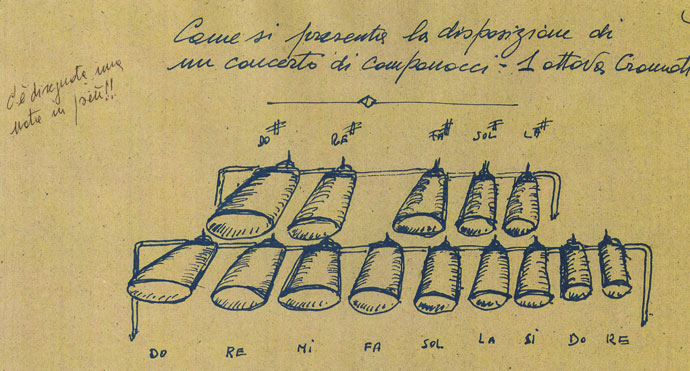 Come si presenta la disposizione di
un concerto di campanacci - 1 ottava Cromati
C'è disegnata una
nota in più!!
DO# RE# FA# SOL# LA#
DO RE MI FA SOL LA SI DO RE